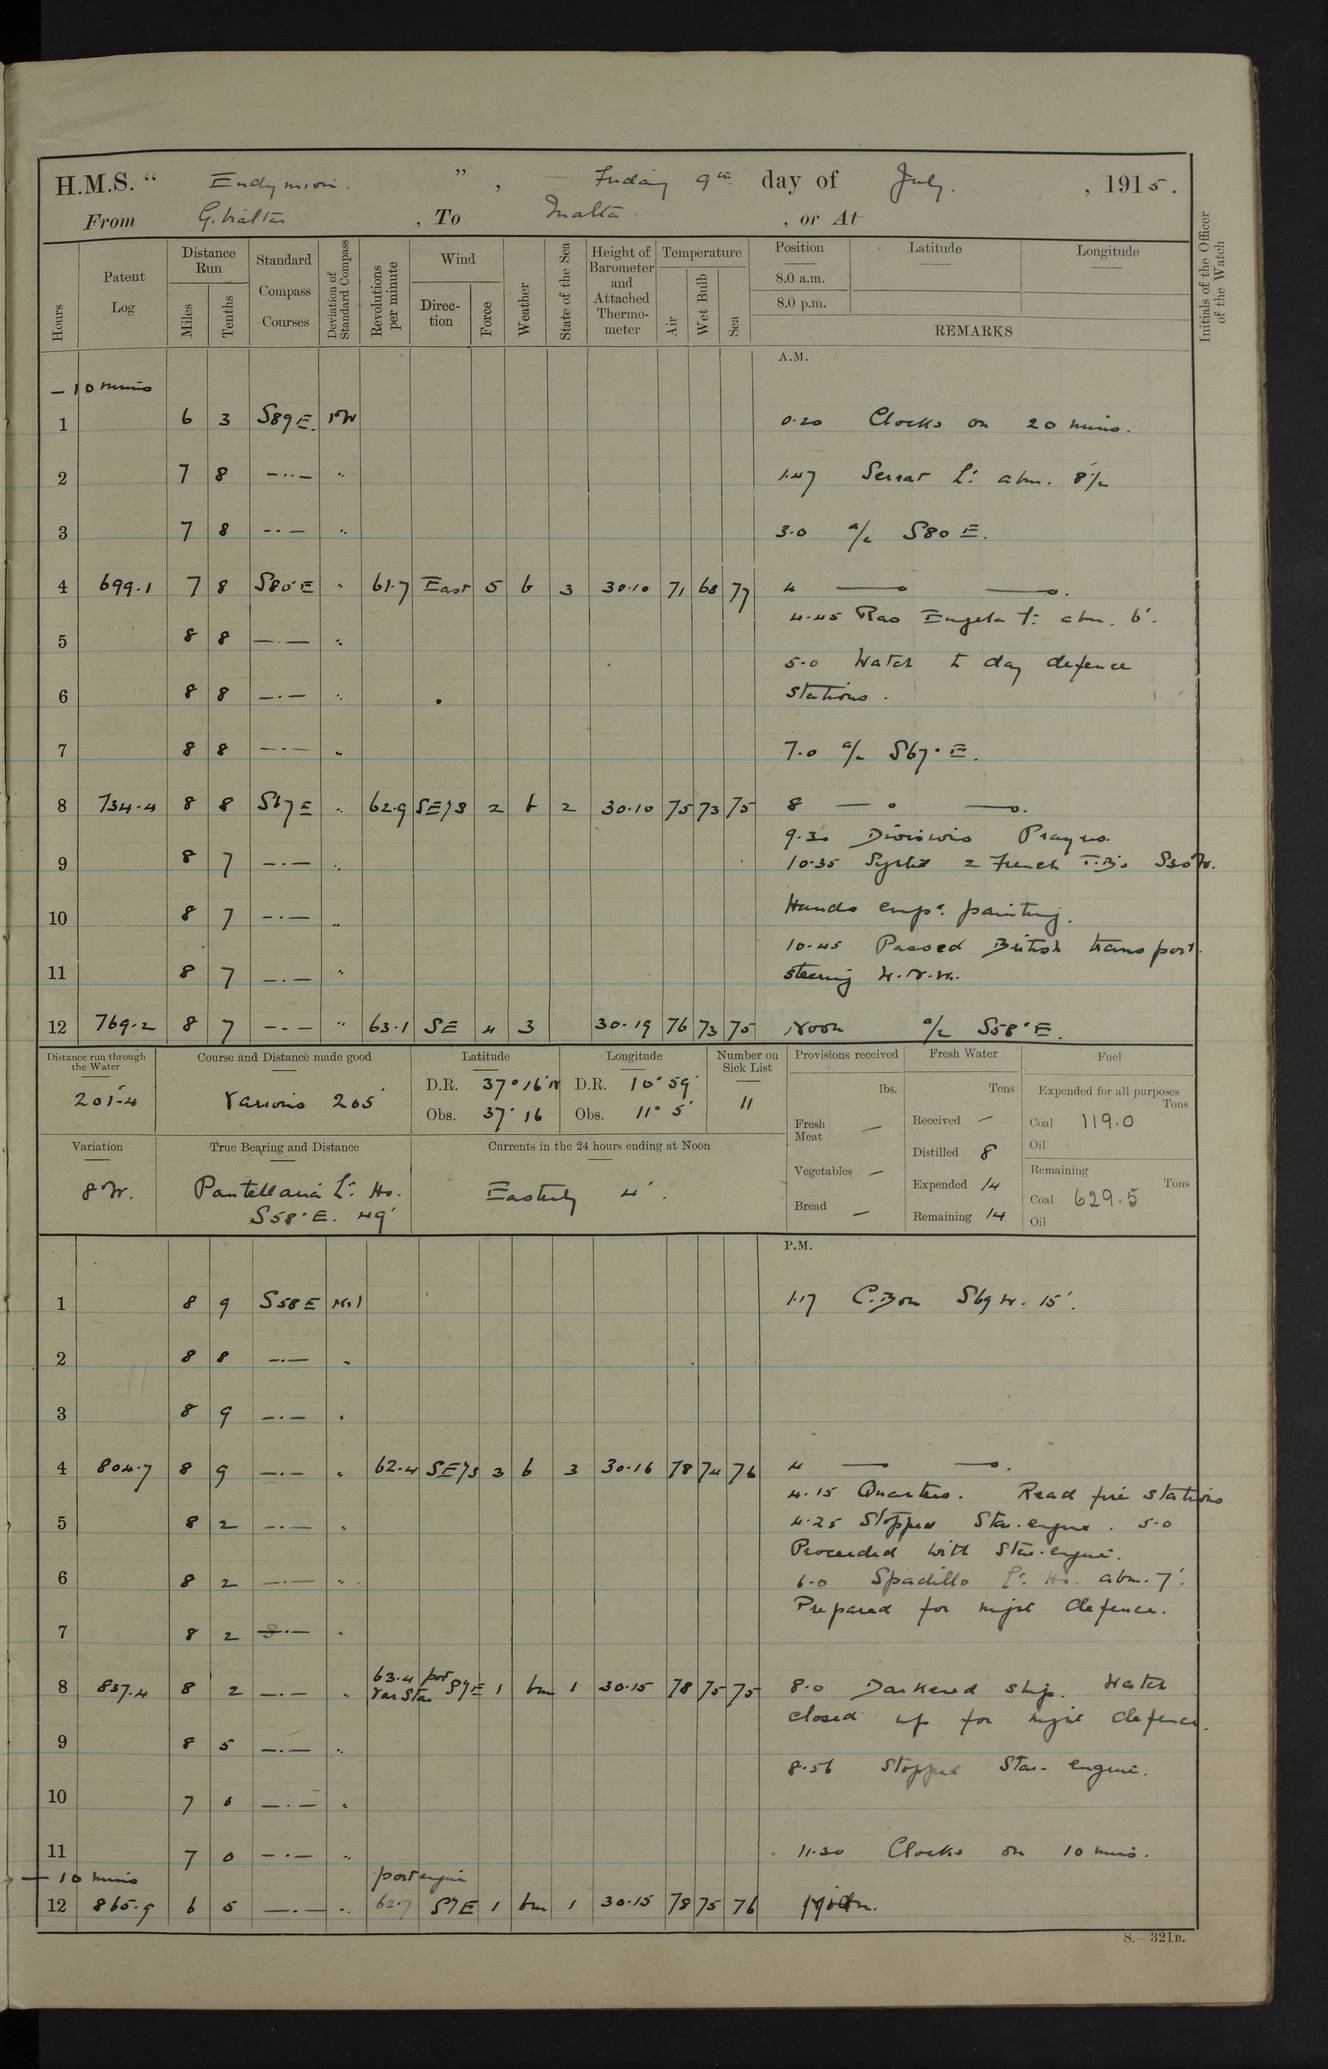 H.M.S. “ Endymion. ” , Friday 9th day of July. , 1915.
From Gibraltar , To Malta. , or At
Hours
Patent Log
Distance Run
Miles
Tenths
Standard Compass Courses
Deviation of Standard Compass
Revolutions per minute
Wind
Direction
Force
Weather
State of the Sea
Height of Barometer and Attached Thermometer
Temperature
Air
Wet Bulb
Sea
Position
Latitude
Longitude
8.0 a.m.
8.0 p.m.
REMARKS
Initials of the Officer of the Watch
A.M.
— 10 mins
1 6 3 S89E. 1°W 0.20 Clocks on 20 mins.
2 7 8 —··— " 1.47 Serrat Lt. abm. 8½
3 7 8 —·— " 3.0 a/c S80E.
4 699.1 7 8 S80°E " 61.7 East 5 b 3 30.10 71 68 77 4 — —.
4.45 Ras Engela Lt. abm. 6'.
5 8 8 —·— "
5.0 Watch to day defence
6 8 8 —·— " stations.
7 8 8 —·— " 7.0 a/c S67°E.
8 734.4 8 8 S67E " 62.9 SE/S 2 b 2 30.10 75 73 75 8 — —.
9.30 Divisions Prayers.
9 8 7 —·— " 10.35 Sighted 2 French T.B's S30W.
10 8 7 —·— " Hands empd. painting.
10.45 Passed British transport
11 8 7 —·— " steering W.N.W.
12 769.2 8 7 —·— " 63.1 SE 4 3 30.19 76 73 75 Noon a/c S58°E.
Distance run through the Water
201.4
Course and Distance made good
Various 205'
Latitude
D.R. 37°16'N
Obs. 37°16
Longitude
D.R. 10°59'
Obs. 11°5'
Number on Sick List
11
Provisions received
lbs.
Fresh Meat —
Vegetables —
Bread —
Fresh Water
Tons
Received —
Distilled 8
Expended 14
Remaining 14
Fuel
Expended for all purposes
Tons
Coal 119.0
Oil
Remaining
Tons
Coal 629.5
Oil
Variation
8°W.
True Bearing and Distance
Pantellaria Lt. Ho.
S58°E. 49'
Currents in the 24 hours ending at Noon
Easterly 4'.
P.M.
1 8 9 S58E Nil 1.17 C. Bon S69W. 15'.
2 8 8 —·— "
3 8 9 —·— "
4 804.7 8 9 —·— " 62.4 SE/S 3 b 3 30.16 78 74 76 4 — —.
4.15 Quarters. Read fire stations
5 8 2 —·— " 4.25 Stopped Star. engine. 5.0
Proceeded with Star. engine.
6 8 2 —·— " 6.0 Spadillo Lt. Ho. abm. 7'.
Prepared for night defence.
7 8 2 —·— "
8 837.4 8 2 —·— " 63.4 port Var Star S/E 1 bm 1 30.15 78 75 75 8.0 Darkened ship. Watch
closed up for night defence.
9 8 5 —·— "
8.56 Stopped Star. engine.
10 7 0 —·— "
11 7 0 —·— " 11.30 Clocks on 10 mins.
— 10 mins port engine
12 865.9 6 5 —·— " 62.7 S/E 1 bm 1 30.15 78 75 76 Midn.
S.—321B.